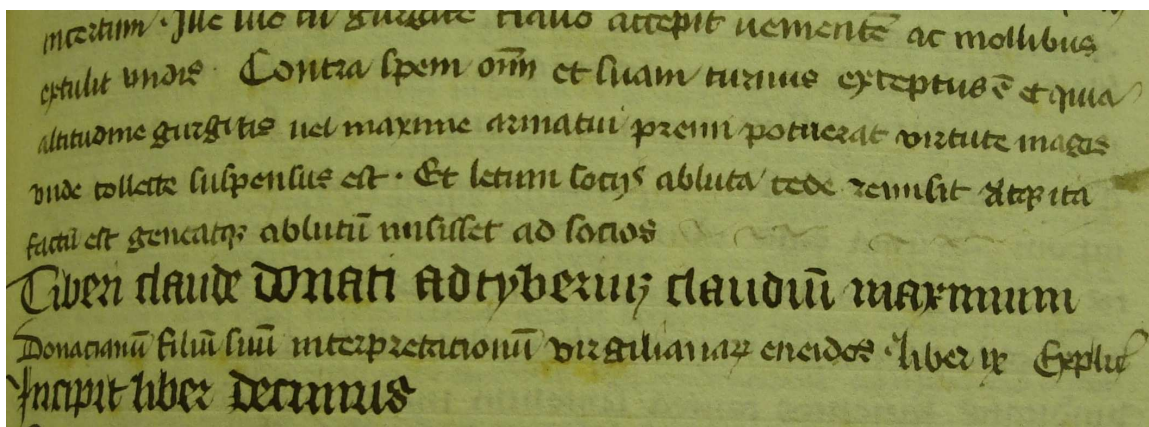 incertum · Ille suo cū gurgite flauo accepit uementē ac mollibus
extulit vndis · Contra spem om̄ et suam turnus exceptus ē et quia
altitudine gurgitis uel maxime armatui premi potuerat virtute magis
vnde collecte suspensus est · Et letum socijs abluta cede remisit atqꝫ ita
factū est ablutū misisset ad socios
Tiberi claude donati ad tyberiuꝫ claudiū maximum
Donacianū filiū suū interpretacionū virgilianaꝝ eneidos · liber ix Explic̄
Incipit liber decimus